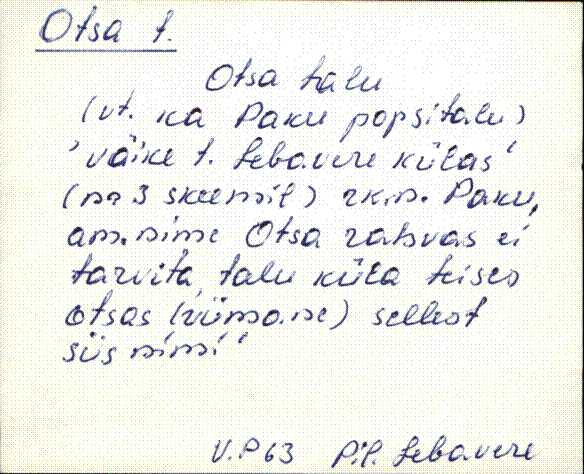 Otsa t.
Otsa talu
(vt. ka Paku popsitalu)
'väike t. Lebavere külas'
(nr 3 skeemil) rkm. Paku,
am. nime Otsa rahvas ei
tarvita, talu küla teises
otsas (viimane) sellest
siis nimi'
V.P 63 Pil. Lebavere